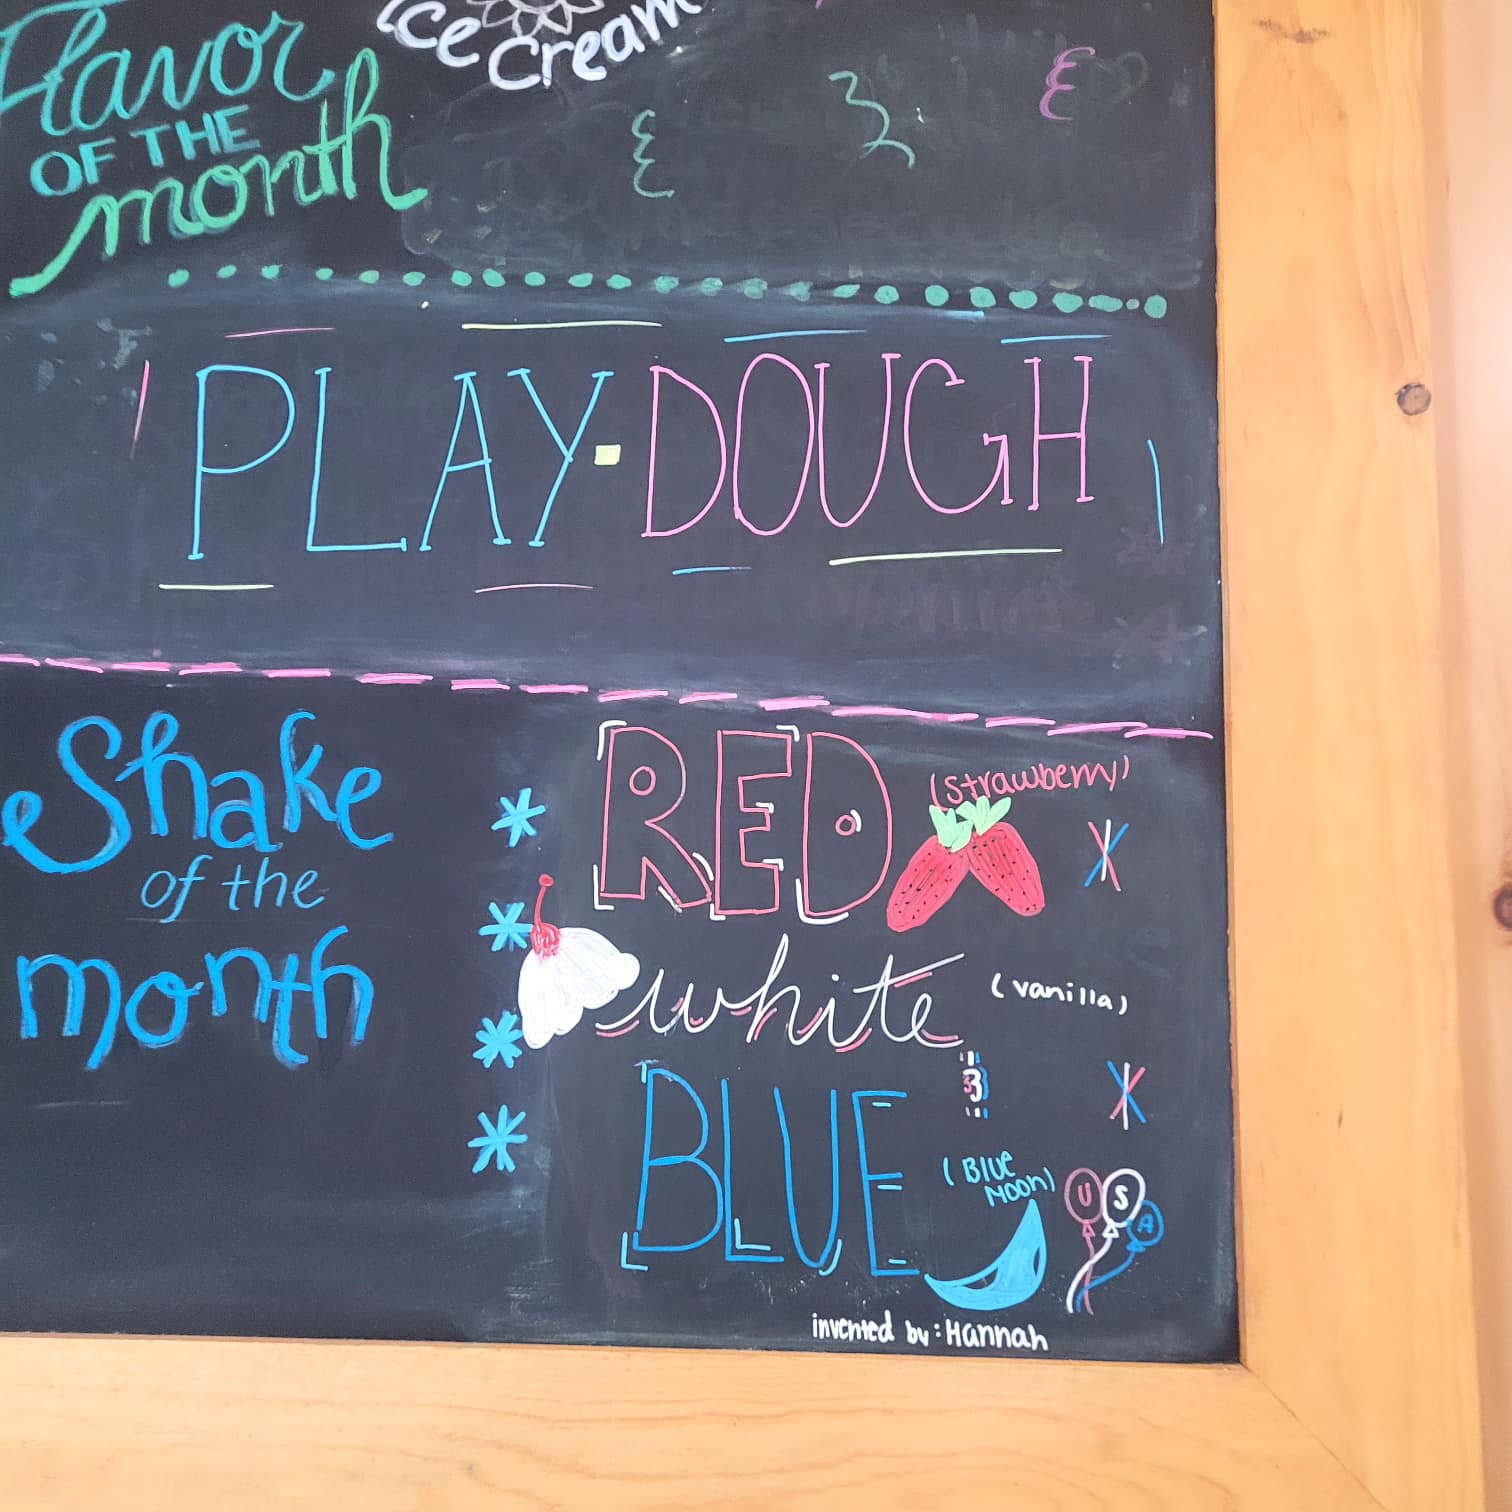 Ice Cream
Flavor
OF THE
month
PLAY·DOUGH
Shake
of the
month
RED (strawberry)
white (vanilla)
BLUE (BLUE
MOON)
U S A
invented by: Hannah